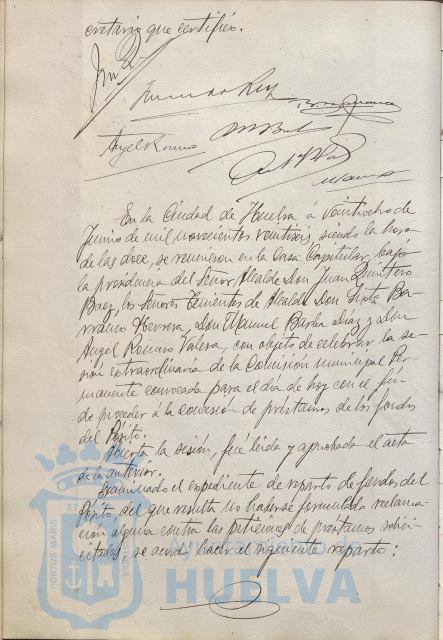 cretario que certifico.
Angel Romero
En la Ciudad de Huelva á veintiocho de
Junio de mil novecientos veintiseis, siendo la hora
de las doce, se reunieron en la Casa Capitular, bajo
la presidencia del Señor Alcalde Don Juan Quintero
Baez, los Señores Tenientes de Alcalde Don Sixto Ba-
rranco Herrera, Don Manuel Barba Diaz y Don
Angel Romero Valera, con objeto de celebrar la se-
sion extraordinaria de la Comisión municipal Per-
manente convocada para el dia de hoy con el fin
de proceder á la concesión de préstamos de los fondos
del Pósito.
Abierta la sesión, fué leida y aprobada el acta
de la anterior.
Examinado el expediente de reparto de fondos del
Pósito del que resulta no haberse formulado reclama-
ción alguna contra las peticiones de prestamos solici-
citados, se acordó hacer el siguiente reparto:
PORTUS MARIS
ET
Ayuntamiento de
HUELVA